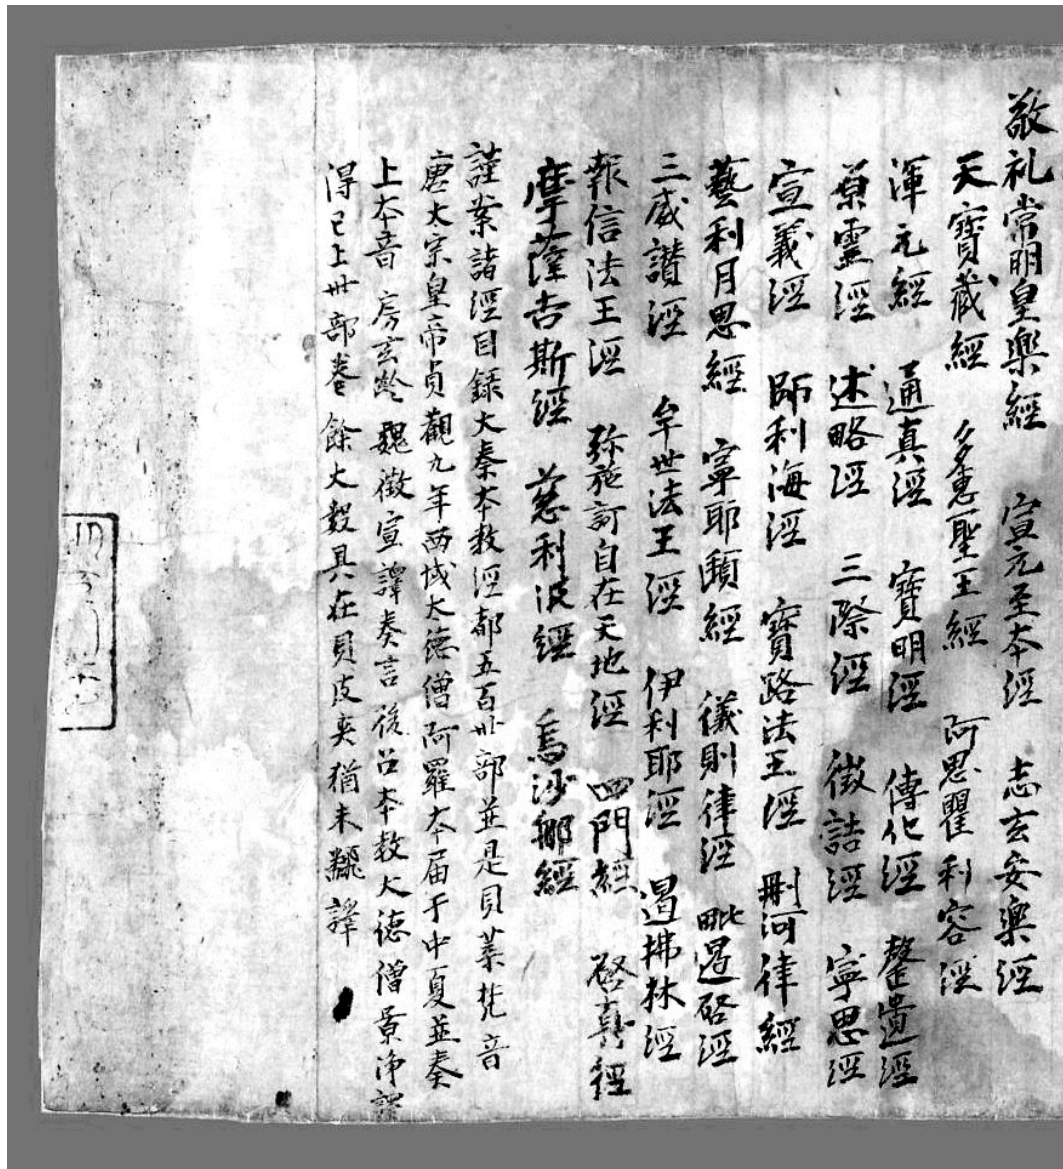 敬礼常明皇樂經 宣元至本經 志玄安樂經
天寶藏經 多惠聖王經 阿思瞿利容經
渾元經 通真經 寶明經 傳化經 罄遺經
原靈經 述略經 三際經 徵詰經 寧思經
宣義經 師利海經 寶路法王經 刪河律經
藝利月思經 寧耶頤經 儀則律經 毗遏啓經
三威讚經 牟世法王經 伊利耶經 遏拂林經
報信法王經 弥施訶自在天地經 四門經 啓真經
摩薩吉斯經 慈利波經 烏沙郍經
謹案諸經目錄大秦本教經都五百卅部並是貝葉梵音
唐太宗皇帝貞觀九年西域太德僧阿羅本届于中夏並奏
上本音 房玄齡 魏徵宣譯奏言 後召本教大德僧景淨譯
得已上卅部卷 餘大數具在貝皮夾猶未飜譯